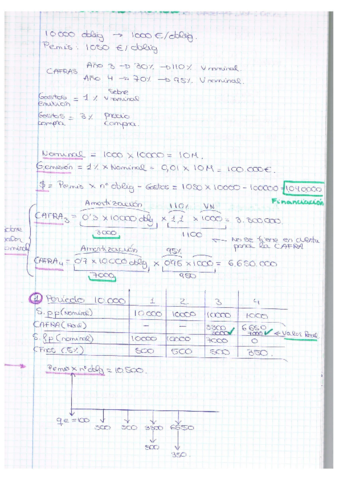 10.000 oblig → 1000 €/oblig.
Pemis: 1050 €/oblig
CAFRAS Año 3 → 30% → 110% V nominal
Año 4 → 70% → 95% V nominal.
Gastos emisión = 1% sobre V nominal
Gastos compra = 3% precio compra.
Nominal = 1000 × 10000 = 10M.
Gemisión = 1% × Nominal = 0,01 × 10M = 100.000€.
$ = Pemis × nº oblig - Gastos = 1050 × 10000 - 100000 = 10400000
Financiación
Amortización 110% VN
CAFRA3 = 0'3 × 10000 oblig × 1,1 × 1000 = 3.300.000
3000 1100
No se tiene en cuenta para las CAFRA
Amortización 95%
CAFRA4 = 0'7 × 10.000 oblig × 0'95 × 1000 = 6.650.000
7000 950
Periodo 10.000 1 2 3 4
S. pp (nominal) 10000 10000 10000
CAFRA - - 3300 6650
3000 7000
S. fp (nominal) 10000 10000 7000 0
CFies (5%) 500 500 500 350.
Pemis × nº oblig = 10.500.
ge = 100 500 500 3300 6650
500 350.